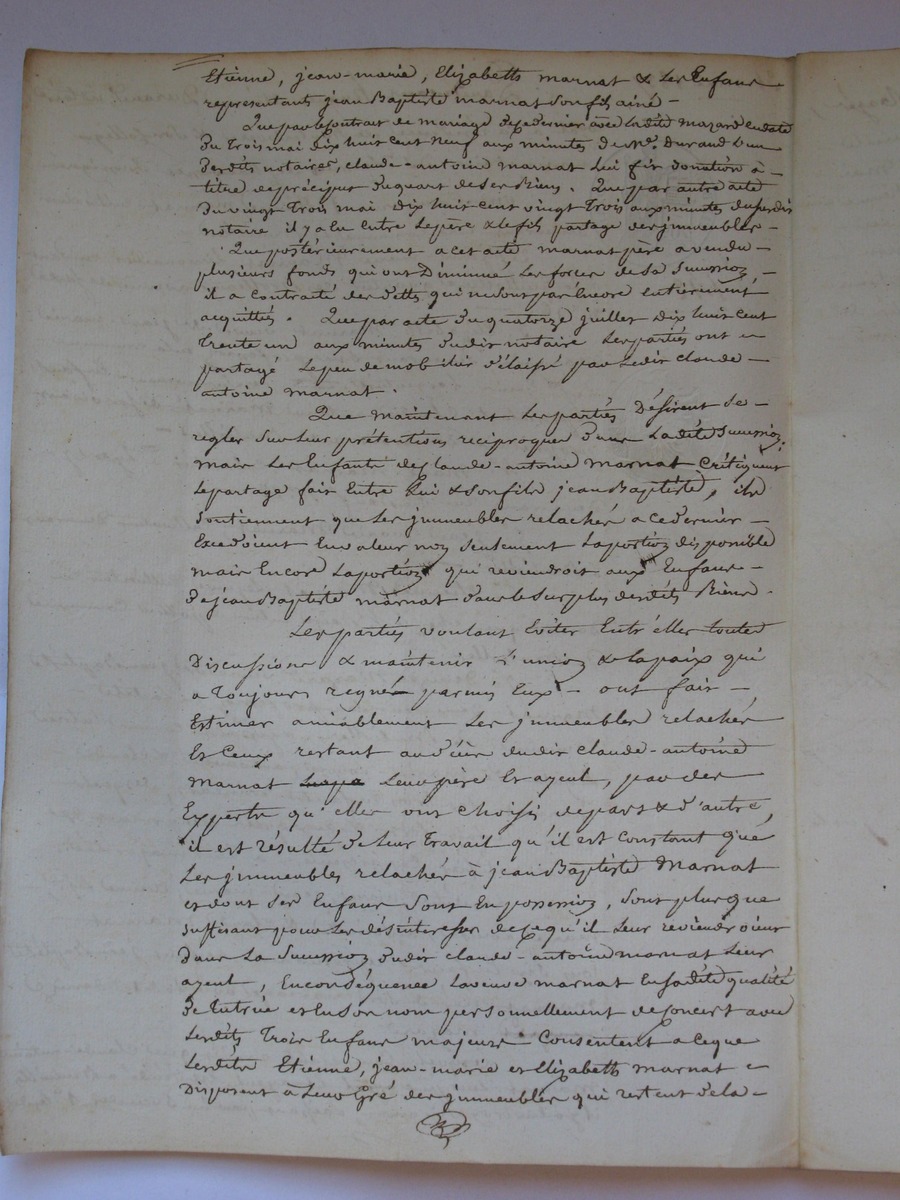 Etienne, jean-marie, Elizabeth marnat & les Enfans
representants jean Baptiste marnat son fils ainé -
Que par le contrat de mariage de ce dernier avec ladite mazard en date
du Trois mai dix huit cent neuf aux minutes de Me. Durand l'un
desdits notaires, claude-antoine marnat lui fit donation à -
titre de préciput du quart de ses Biens. Que par autre acte
du vingt Trois mai dix huit cent vingt Trois aux minutes du susdit
notaire il y a eu Entre le père & le fils partage des jmmeubles -
Que postérieurement a cet acte marnat père a vendu -
plusieurs fonds qui ont Diminué les forces de sa succession, -
il a contracté des dettes qui ne sont pas Encore Entièrement
acquittés. Que par acte du quatorze juillet dix huit cent
trente un aux minutes dudit notaire les parties ont -
partagé le peu de mobilier délaissé par ledit claude -
antoine marnat.
Que maintenant les parties Désirent se -
regler sur leur prétentions reciproques dans ladite succession,
mais les Enfants de claude-antoine marnat critiquent
le partage fait Entre lui & son fils jean Baptiste, ils
soutiennent que les jmmeubles relachés a ce dernier -
Excedoient En valeur non seulement la portion disponible
mais Encore la portion qui reviendroit aux Enfans -
de jean Baptiste marnat dans le surplus desdits Biens -
Les parties voulant Eviter Entr'elles toutes
Discussions & maintenir l'union & la paix qui
a toujours regné parmis Eux - ont fait -
Estimer amiablement les jmmeubles relachés
Et ceux restant au décès dudit claude-antoine
marnat leur père Et ayeul, par des
Experts qu'elles ont choisis de part & d'autre,
il est résulté de leur Travail qu'il est constant que
les jmmeubles relachés à jean Baptiste Marnat
et dont ses Enfans sont En possession, sont plus que
suffisant pour les désinteresser de ce qu'il leur reviendroient
dans la succession dudit claude-antoine marnat leur
ayeul, En conséquence la veuve marnat En sadite qualité
de tutrice et En son nom personnellement de concert avec
lesdits Trois Enfans majeurs Consentent a ce que
lesdits Etienne, jean-marie et Elizabeth marnat -
Disposent à leur Gré des jmmeubles qui restent de la -